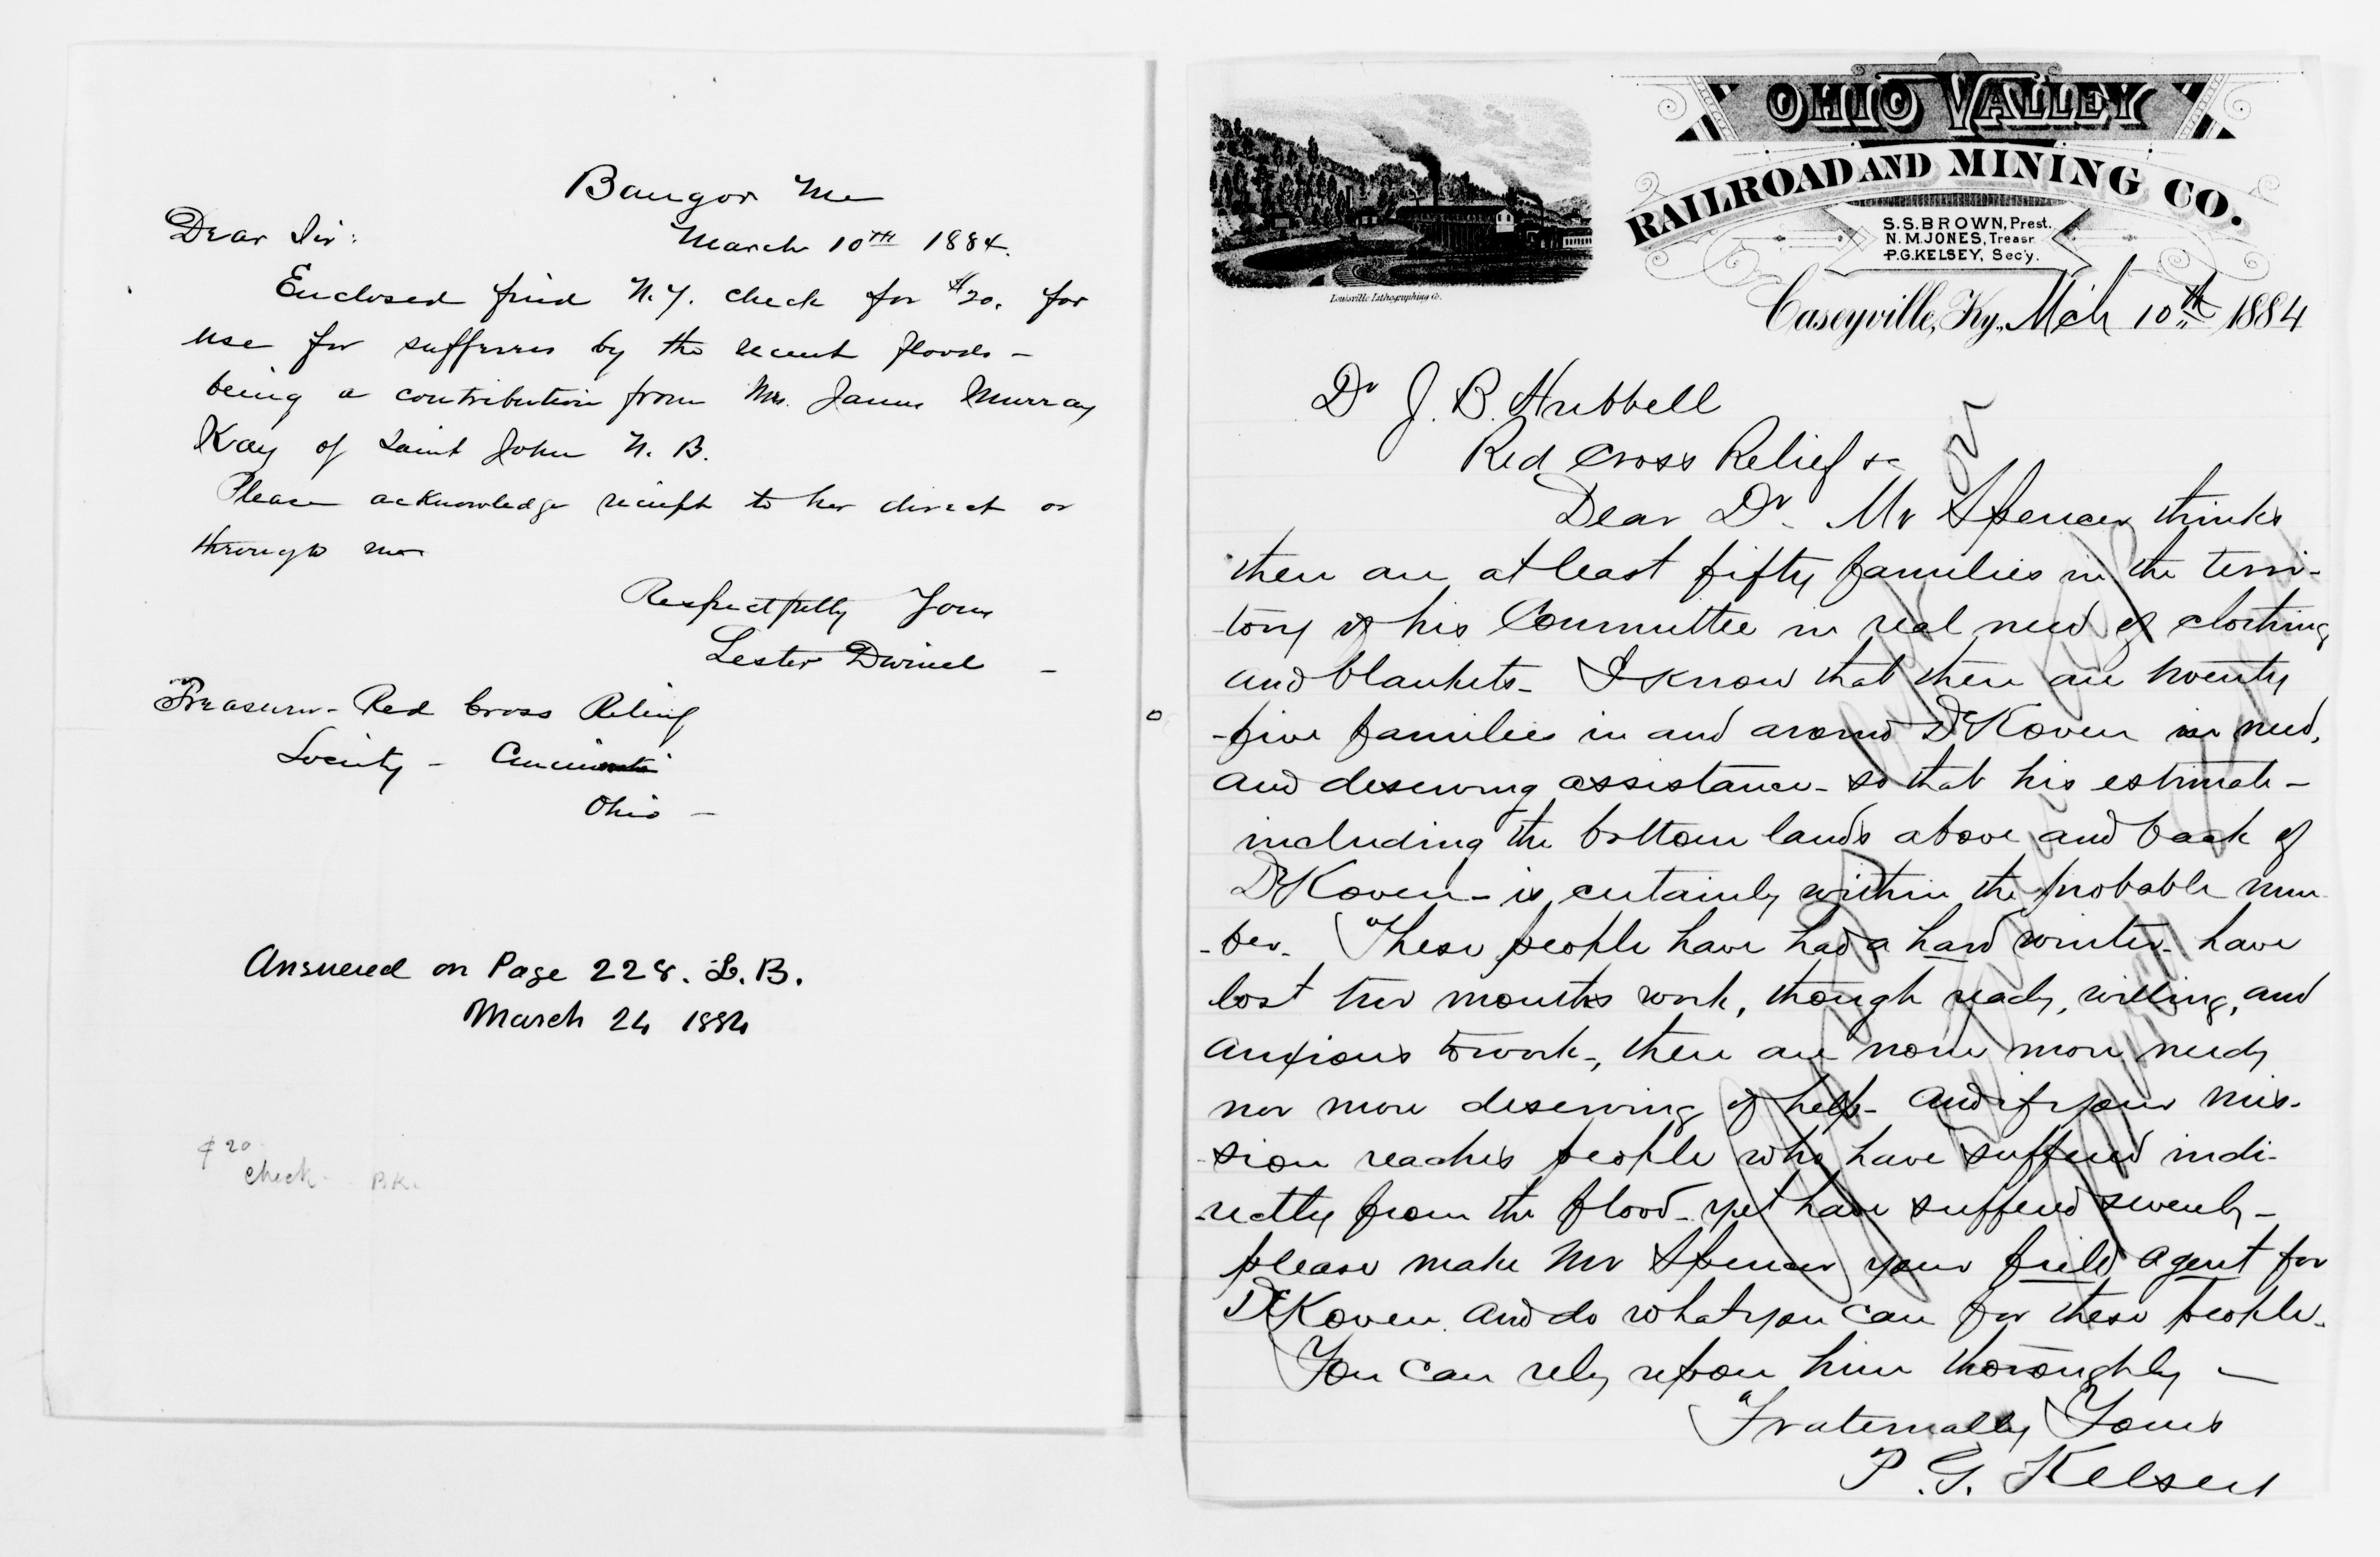 Bangor Me
Dear Sir:
March 10TH 1884.
Enclosed find N.Y. check for $20. for
use for sufferers by the recent floods –
being a contribution from Mrs. James Murray
Kay of Saint John N. B.
Please acknowledge receipt to her direct or
through me
Respectfully Yours
Lester Dwinel –
Treasurer – Red Cross Relief
Society – Cincinnati
Ohio –
Answered on Page 228. L. B.
March 24 1884
$20
Check – B.K.
OHIO VALLEY
RAILROAD AND MINING CO.
S.S. BROWN, Prest.
N. M. JONES, Treasr
P.G. KELSEY, Sec'y.
Louisville Lithographing Co.
Caseyville, Ky., Mch 10th 1884
Dr J. B. Hubbell
Red Cross Relief &c
Dear Dr. Mr Spencer thinks
there are at least fifty families in the terri-
-tory of his Committee in real need of clothing
and blankets – I know that there are twenty
-five families in and around DeKoven in need,
and deserving assistance – so that his estimate –
including the bottom lands above and back of
DeKoven – is certainly within the probable num
-ber. These people have had a hard winter – have
lost two months work, though ready, willing, and
anxious to work –, there are none more needy
nor more deserving of help – and if your mis-
-sion reaches people who have suffered indi-
-rectly from the flood – yet have suffered severely –
please make Mr Spencer your field agent for
DeKoven and do what you can for these people.
You can rely upon him thoroughly –
Fraternally Yours
P. G. Kelsey